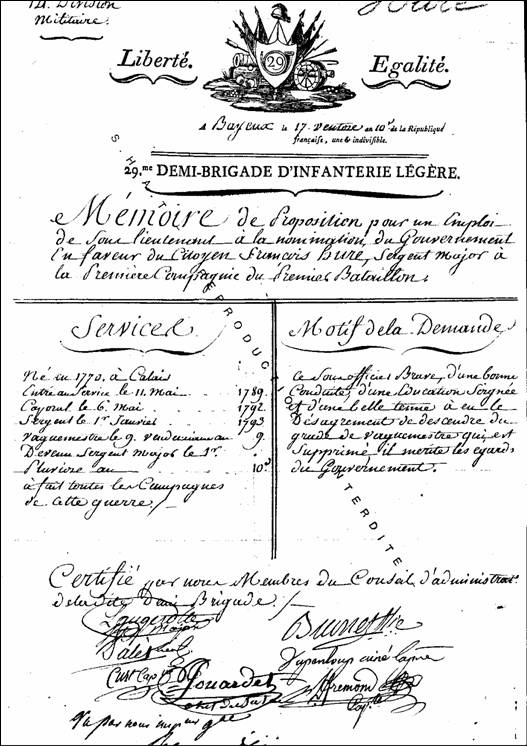 Division
Militaire.
Huré
29
Liberté. Egalité.
A Bayeux le 17 Ventose an 10e de la République
française, une & indivisible.
29.me DEMI-BRIGADE D'INFANTERIE LÉGÈRE.
Mémoire de Proposition pour un Emploi
de Sous lieutenant à la nomination du Gouvernement
En faveur du Citoyen François huré, Sergent Major à
la Première Compagnie du Premier Bataillon.
Services
Né en 1770. à Calais
Entré au Service le 11. Mai 1789.
Caporal le 6. Mai 1792.
Sergent le 1er Janvier 1793
Vaguemestre le 9. vendemiaire an 9.
Devenu Sergent major le 1er
Pluviose an 10e
à fait toutes les Campagnes
de cette guerre./.
Motif de la Demande
Ce Sous officier Brave, d'une bonne
Conduite, d'une Education Soignée
et d'une belle tenue à eu le
Désagrement de descendre du
grade de vaguemestre qui est
Supprimé il merite les egards
du Gouvernement.
SHA REPRODUCTION INTERDITE
Certifié par nous Membres du Conseil d'administrat
de la dite Demi Brigade./.
major
Jouardet
fremond
Vu par nous